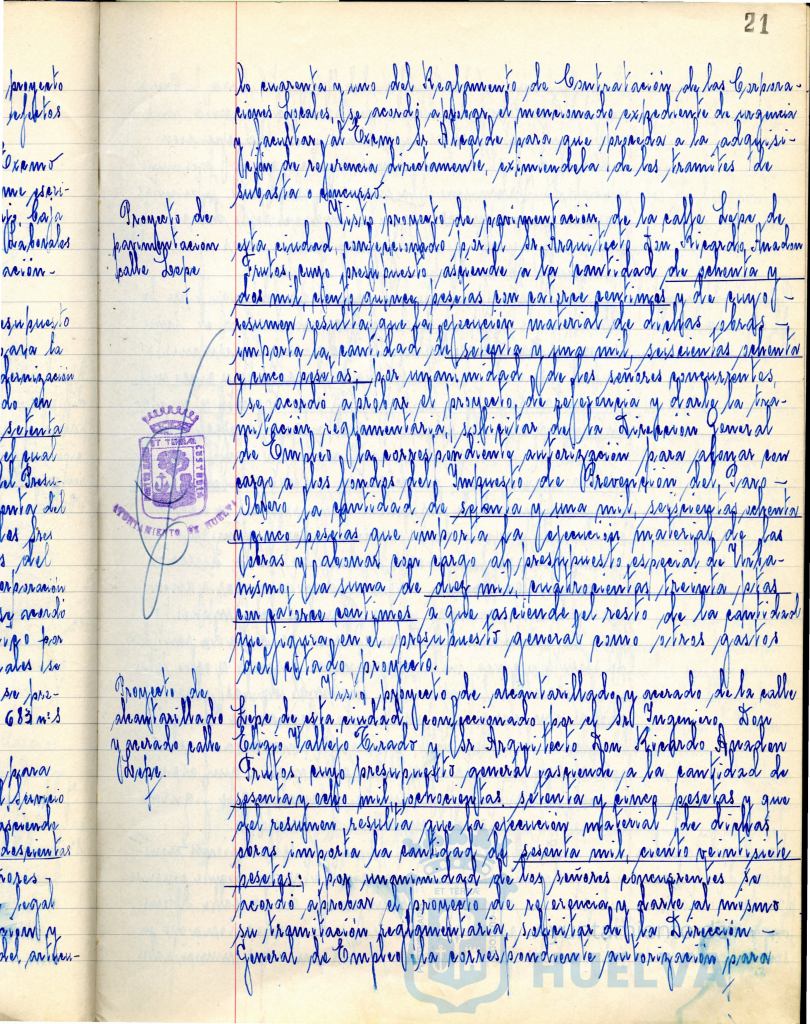 21
proyecto
efectos
Excmo
me escri-
Caja
Laborales
ación-
esupuesto
para la
dernización
do en
setenta
el cual
el Presu-
enta del
los Sres
s del
orporación
se acordó
tivo por
ales se
se pre-
683 n: s
para
l Servicio
asciende
doscientas
ñores-
legal
del artícu-
lo cuarenta y uno del Reglamento de Contratación de las Corpora-
ciones Locales, se acordó aprobar el mencionado expediente de urgencia
y facultar al Excmo Sr Alcalde para que proceda a la adquisi-
ción de referencia directamente, eximiendola de los tramites de
subasta o concurso.
Proyecto de
pavimentación
calle Lepe
Visto proyecto de pavimentación de la calle Lepe de
esta ciudad, confeccionado por el Sr Arquitecto Don Ricardo Anadon
Frutos, cuyo presupuesto asciende a la cantidad de ochenta y
dos mil ciento quince pesetas con catorce centimos y de cuyo-
resumen resulta que la ejecución material de dichas obras-
importa la cantidad de setenta y una mil, seiscientas ochenta
y cinco pesetas; por unanimidad de los señores concurrentes,
se acordó aprobar el proyecto de referencia y darle la tra-
mitación reglamentaria, solicitar de la Dirección General
de Empleo la correspondiente autorización para abonar con
cargo a los fondos del Impuesto de Prevención del Paro-
Obrero la cantidad de setenta y una mil, seiscientas ochenta
y cinco pesetas que importa la ejecución material de las
obras y abonar con cargo al presupuesto especial de Urba-
nismo, la suma de diez mil, cuatrocientas treinta ptas
con catorce centimos a que asciende el resto de la cantidad
que figura en el presupuesto general como otros gastos
del citado proyecto.
ET TERRAE
CUSTODIA
AYUNTAMIENTO DE HUELVA
Proyecto de
alcantarillado
y acerado calle
Lepe.
Visto proyecto de alcantarillado y acerado de la calle
Lepe de esta ciudad, confeccionado por el Sr Ingeniero Don
Eligio Vallejo Tirado y Sr Arquitecto Don Ricardo Anadon
Frutos, cuyo presupuesto general asciende a la cantidad de
sesenta y ocho mil, ochocientas setenta y cinco pesetas y que
del resumen resulta que la ejecución material de dichas
obras importa la cantidad de sesenta mil, ciento veintisiete
pesetas; por unanimidad de los señores concurrentes se
acordó aprobar el proyecto de referencia y darle al mismo
su tramitación reglamentaria, solicitar de la Dirección-
General de Empleo la correspondiente autorización para
HUELVA